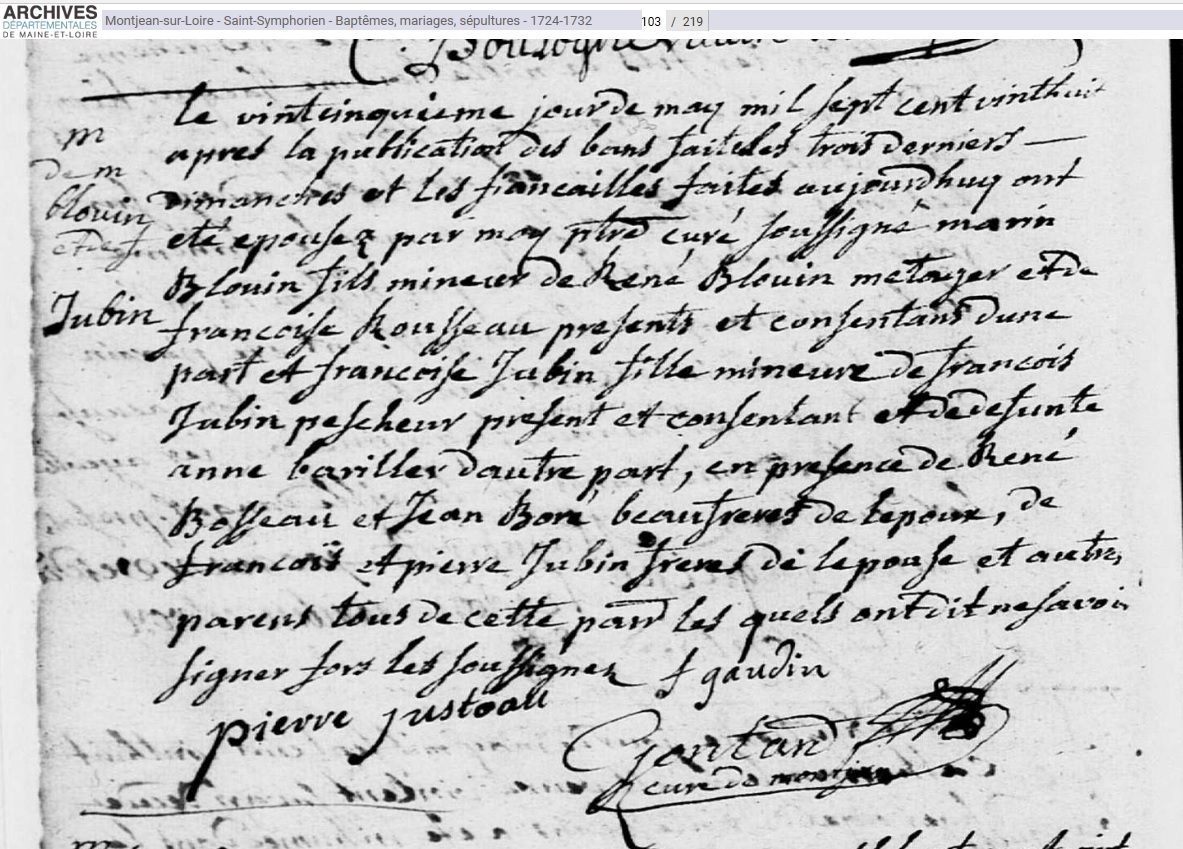 ARCHIVES
DÉPARTEMENTALES
DE MAINE-ET-LOIRE
Montjean-sur-Loire - Saint-Symphorien - Baptêmes, mariages, sépultures - 1724-1732
103 / 219
m
de m
blouin
et de f
Jubin
Le vintcinquieme jour de may mil sept cent vinthuit
apres la publication des bans faite les trois derniers
Dimanches et les fiancailles faites aujourdhuy ont
eté epousez par moy ptre curé soussigné marin
Blouin fils mineur de René Blouin metayer et de
francoise Rousseau presents et consentans dune
part et francoise Jubin fille mineure de francois
Jubin pescheur present et consentant et de defunte
anne bariller dautre part, en presence de René
Bosseau et Jean Boré beaufreres de lepoux, de
francois et pierre Jubin freres de lepouse et autres
parens tous de cette parr les quels ont dit ne savoir
signer fors les soussignez f gaudin
pierre justeau
Gontard
curé de montjean